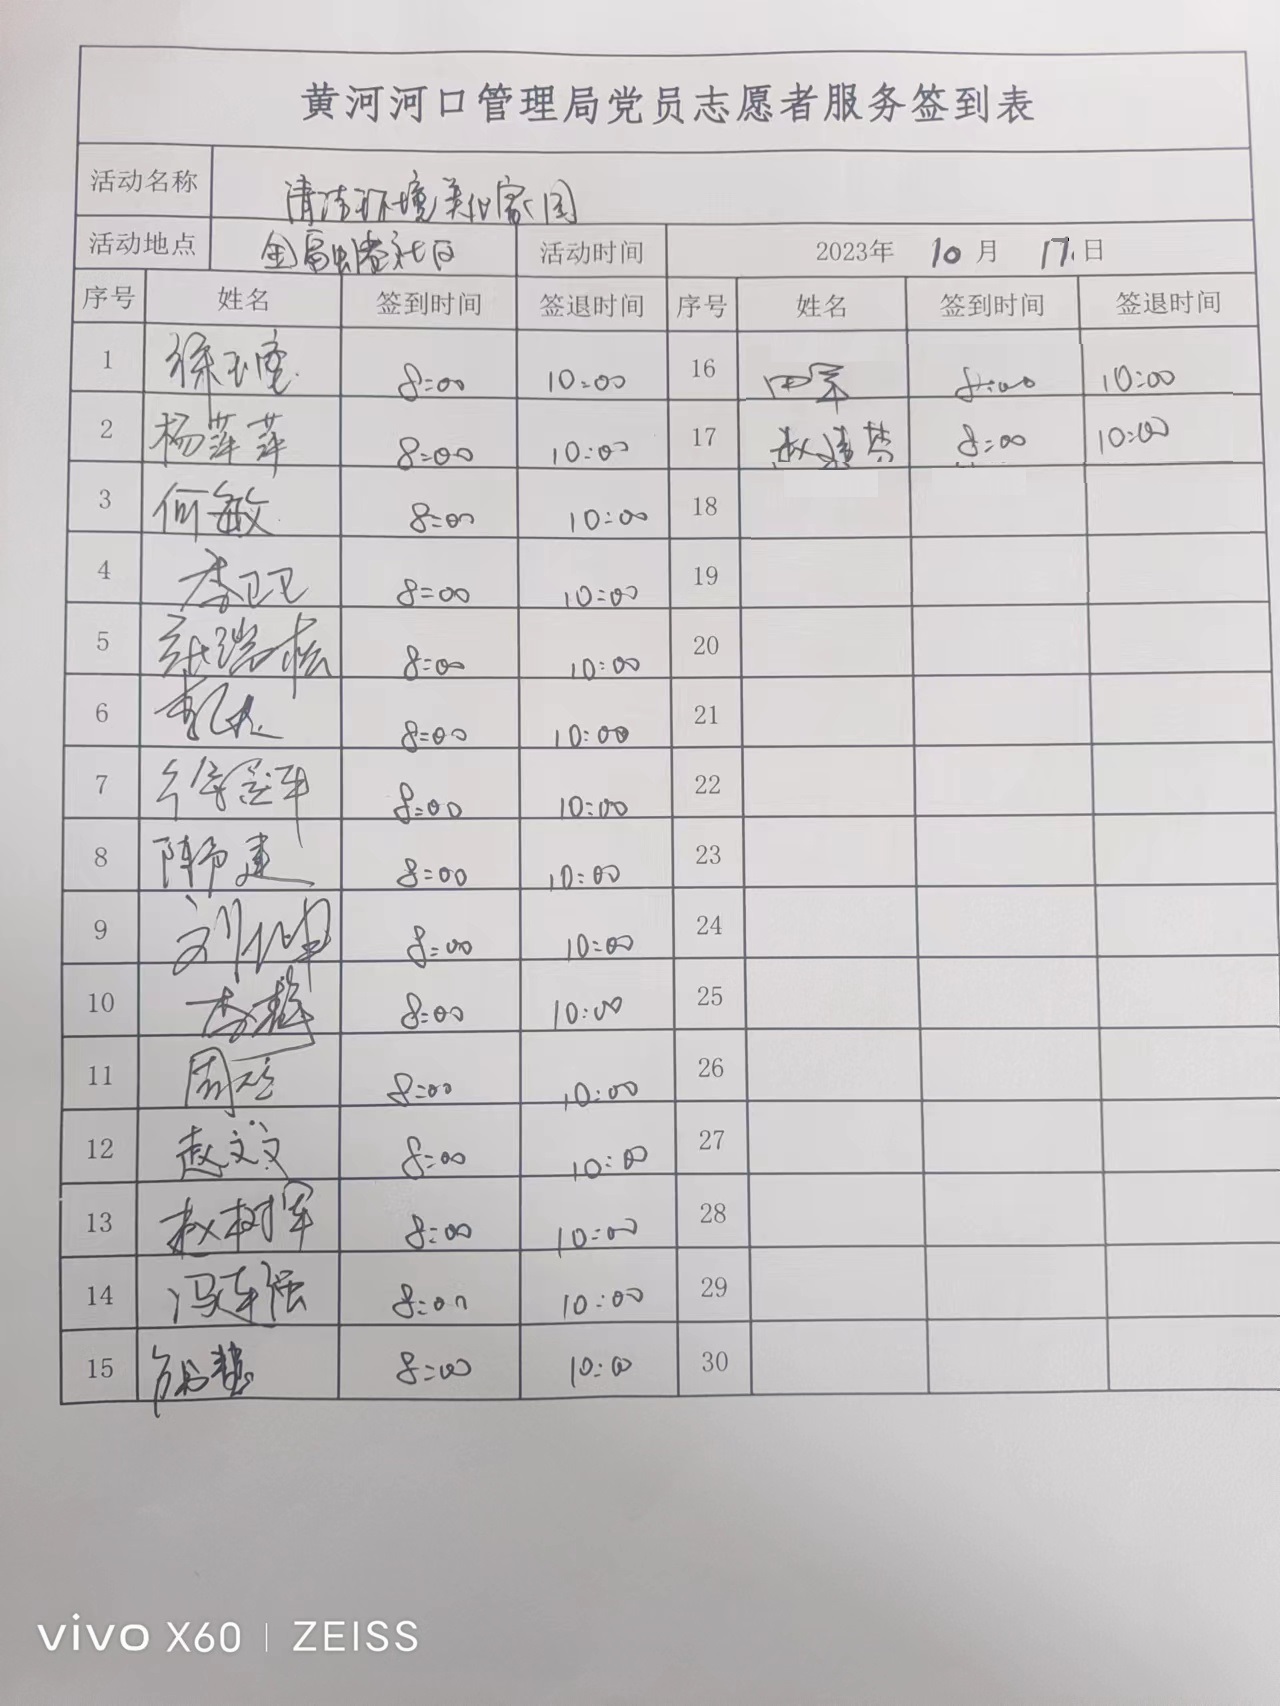 黄河河口管理局党员志愿者服务签到表
活动名称 清洁环境美化家园
活动地点 社区 活动时间 2023年 10月 17日
序号 姓名 签到时间 签退时间 序号 姓名 签到时间 签退时间
1 8:00 10:00 16 田军 8:00 10:00
2 杨萍萍 8:00 10:00 17 赵 8:00 10:00
3 何敏 8:00 10:00 18
4 李卫卫 8:00 10:00 19
5 张瑞 8:00 10:00 20
6 8:00 10:00 21
7 8:00 10:00 22
8 陈希建 8:00 10:00 23
9 刘仁坤 8:00 10:00 24
10 李静 8:00 10:00 25
11 周 8:00 10:00 26
12 赵文文 8:00 10:00 27
13 赵树军 8:00 10:00 28
14 冯连强 8:00 10:00 29
15 8:00 10:00 30
vivo X60 | ZEISS